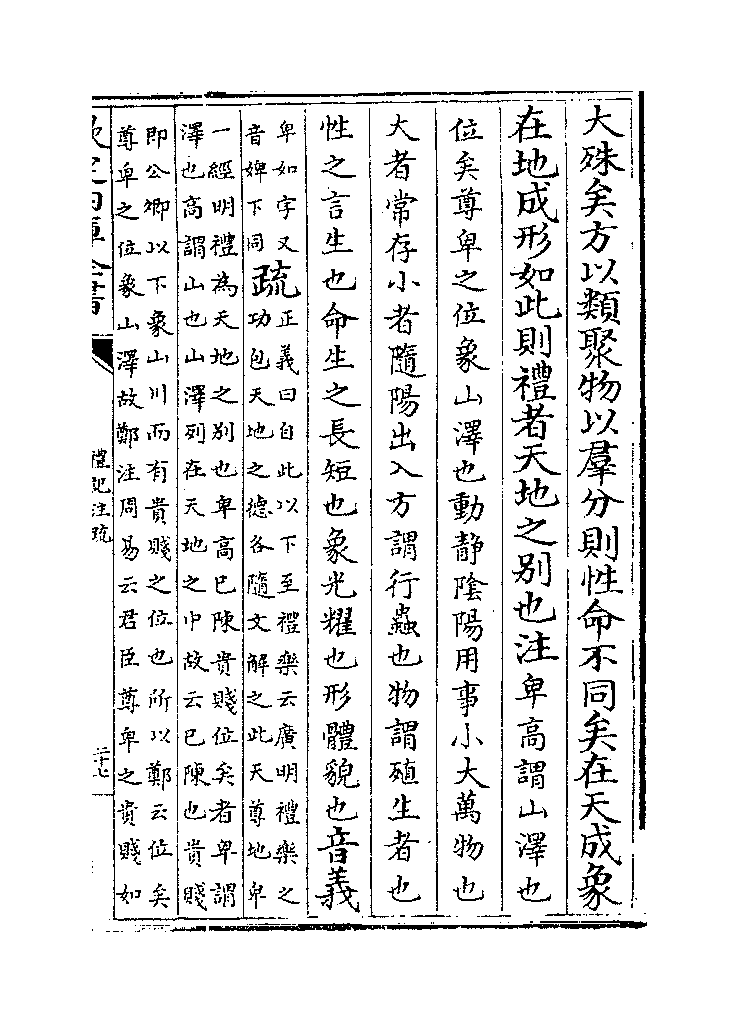 大殊矣方以類聚物以羣分則性命不同矣在天成象
在地成形如此則禮者天地之別也注卑高謂山澤也
位矣尊卑之位象山澤也動靜隂陽用事小大萬物也
大者常存小者隨陽出入方謂行蟲也物謂殖生者也
性之言生也命生之長短也象光耀也形體貌也音義
卑如字又
音婢下同
疏
正義曰自此以下至禮樂云廣明禮樂之
功包天地之德各隨文解之此天尊地卑
一經明禮為天地之別也卑高已陳貴賤位矣者卑謂
澤也髙謂山也山澤列在天地之中故云已陳也貴賤
即公卿以下象山川而有貴賤之位也所以鄭云位矣
尊卑之位象山澤故鄭注周易云君臣尊卑之貴賤如
欽定四庫全書
禮記注疏
三十七